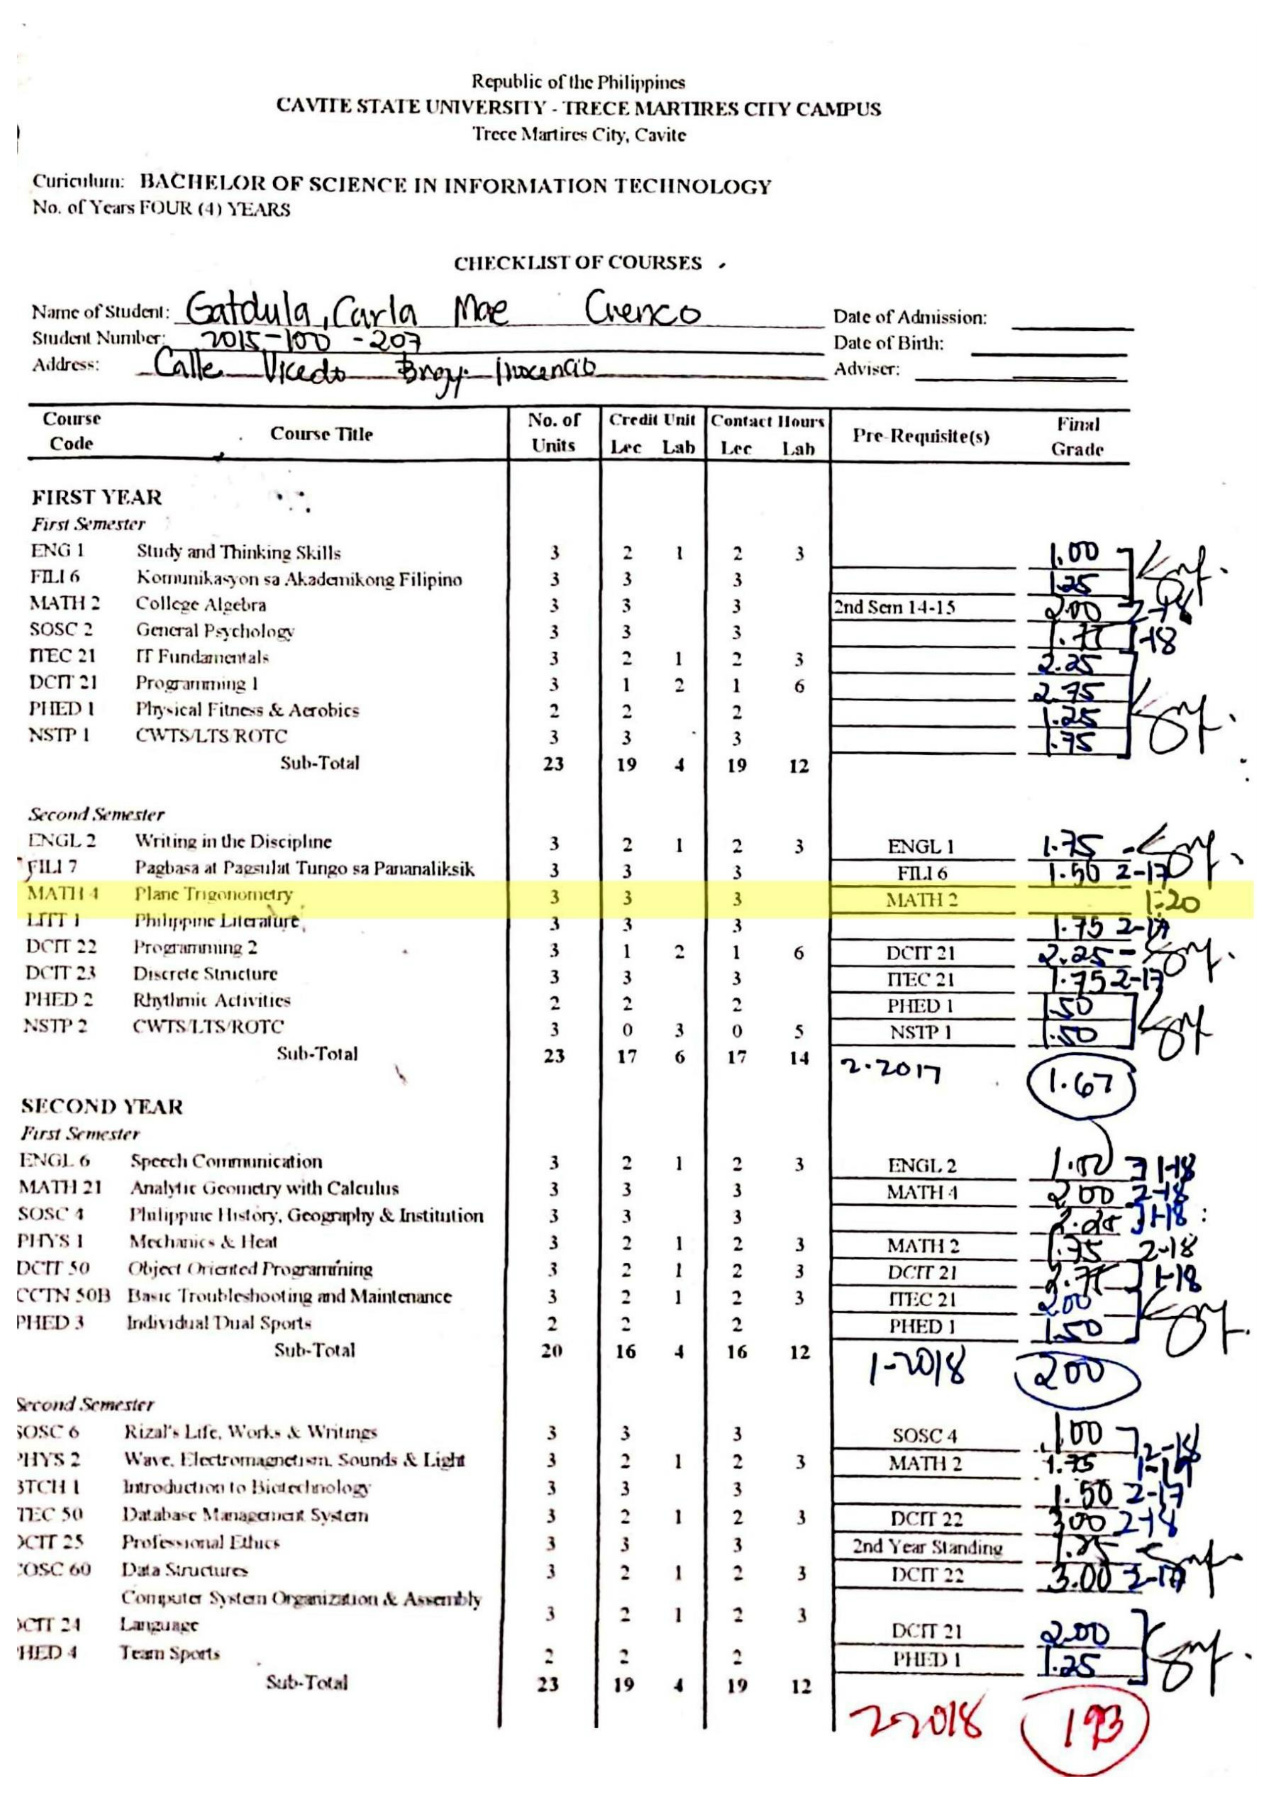 Republic of the Philippines
CAVITE STATE UNIVERSITY - TRECE MARTIRES CITY CAMPUS
Trece Martires City, Cavite
Curiculum: BACHELOR OF SCIENCE IN INFORMATION TECHNOLOGY
No. of Years FOUR (4) YEARS
CHECKLIST OF COURSES
Name of Student: Gatdula, Carla Mae Cuenco Date of Admission:
Student Number: 2015-100-207 Date of Birth:
Address: Calle Vicedo Brgy. Inocencio Adviser:
Course Code Course Title No. of Units Credit Unit Lec Lab Contact Hours Lec Lab Pre-Requisite(s) Final Grade
FIRST YEAR
First Semester
ENG 1 Study and Thinking Skills 3 2 1 2 3 1.00
FILI 6 Komunikasyon sa Akademikong Filipino 3 3 3 1.25
MATH 2 College Algebra 3 3 3 2nd Sem 14-15 2.00 2-18
SOSC 2 General Psychology 3 3 3 1-18
ITEC 21 IT Fundamentals 3 2 1 2 3 2.25
DCIT 21 Programming 1 3 1 2 1 6 2.75
PHED 1 Physical Fitness & Aerobics 2 2 2 1.25
NSTP 1 CWTS/LTS/ROTC 3 3 3 1.75
Sub-Total 23 19 4 19 12
Second Semester
ENGL 2 Writing in the Discipline 3 2 1 2 3 ENGL 1 1.75
FILI 7 Pagbasa at Pagsulat Tungo sa Pananaliksik 3 3 3 FILI 6 1.50 2-17
MATH 4 Plane Trigonometry 3 3 3 MATH 2 1-20
LITT 1 Philippine Literature 3 3 3 1.75 2-17
DCIT 22 Programming 2 3 1 2 1 6 DCIT 21 2.25
DCIT 23 Discrete Structure 3 3 3 ITEC 21 1.75 2-17
PHED 2 Rhythmic Activities 2 2 2 PHED 1 1.50
NSTP 2 CWTS/LTS/ROTC 3 0 3 0 5 NSTP 1 1.50
Sub-Total 23 17 6 17 14 2-2017 1.67
SECOND YEAR
First Semester
ENGL 6 Speech Communication 3 2 1 2 3 ENGL 2 1-18
MATH 21 Analytic Geometry with Calculus 3 3 3 MATH 4 2.00 2-18
SOSC 4 Philippine History, Geography & Institution 3 3 3 1-18
PHYS 1 Mechanics & Heat 3 2 1 2 3 MATH 2 1.75 2-18
DCIT 50 Object Oriented Programming 3 2 1 2 3 DCIT 21 1-18
CCTN 50B Basic Troubleshooting and Maintenance 3 2 1 2 3 ITEC 21 2.00
PHED 3 Individual Dual Sports 2 2 2 PHED 1 1.50
Sub-Total 20 16 4 16 12 1-2018 2.00
Second Semester
SOSC 6 Rizal's Life, Works & Writings 3 3 3 SOSC 4 1.00 2-18
PHYS 2 Wave, Electromagnetism, Sounds & Light 3 2 1 2 3 MATH 2 1.75
BTCH 1 Introduction to Biotechnology 3 3 3 1.50 2-17
ITEC 50 Database Management System 3 2 1 2 3 DCIT 22 3.00 2-18
DCIT 25 Professional Ethics 3 3 3 2nd Year Standing 1.25
COSC 60 Data Structures 3 2 1 2 3 DCIT 22 3.00 2-17
Computer System Organization & Assembly
DCIT 24 Language 3 2 1 2 3 DCIT 21 2.00
PHED 4 Team Sports 2 2 2 PHED 1 1.25
Sub-Total 23 19 4 19 12
2-2018 1.93